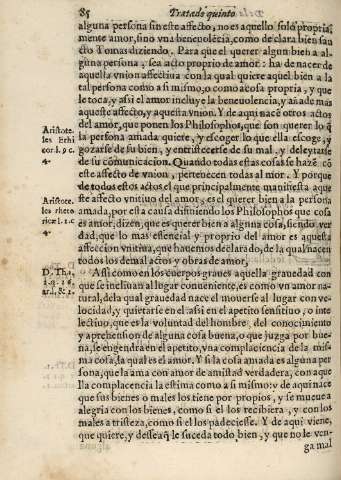 85 Tratado quinto
alguna persona sin este affecto, no es aquello solo propria
mente amor, sino vna beneuolẽcia, como declara bien san
cto Tomas diziendo. Para que el querer algun bien a al-
guna persona, sea acto proprio de amor: ha de nacer de
aquella vnion affectiua con la qual quiere aquel bien a la
tal persona como a si mismo, o como a cosa propria, y que
le toca, y assi el amor incluye la beneuolencia, y añade mas
aqueste affecto, y aquesta vnion. Y de aqui nacẽ otros actos
del amor, que ponen los Philosophos, que son querer lo q̃
la persona amada quiere, y escoger lo que ella escoge, y
gozarse de su bien, y entristecerse de su mal, y deleytarse
de su comunicacion. Quando todas estas cosas se hazẽ cõ
este affecto de vnion, pertenecen todas al amor. Y porque
de todos estos actos el que principalmente manifiesta aque
ste affecto vnitiuo del amor, es el querer bien a la persona
amada, por esta causa difiniendo los Philosophos que cosa
es amor, dizen, que es querer bien a alguna cosa, siendo ver
dad, que lo mas essencial y proprio del amor es aquesta
affeccion vnitiua, que hauemos declarado, de la qual nacen
todos los demas actos y obras de amor.
Assi como en los cuerpos graues aquella grauedad con
que se inclinan al lugar conueniente, es como vn amor na-
tural, de la qual grauedad nace el mouerse al lugar con ve-
locidad, y quietarse en el: assi en el apetito sensitiuo, o inte
lectiuo, que es la voluntad del hombre, del conocimiento
y aprehension de alguna cosa buena, o que juzga por bue
na, se engendra en el apetito, vna complacencia de la mis-
ma cosa, la qual es el amor. Y si la cosa amada es alguna per
sona, que la ama con amor de amistad verdadera, con aque
lla complacencia la estima como a si mismo: y de aqui nace
que sus bienes o males los tiene por propios, y se mueue a
alegria con los bienes, como si el los recibiera, y con los
males a tristeza, como si el los padeciesse. Y de aqui viene,
que quiere, y dessea q̃ le suceda todo bien, y que no le ven-
ga mal
Aristote-
les Ethi
cor l. 9 c.
4.
Aristote.
les rheto
ricæ l. 2. c
4.
D. Tho.
1. 2. q. 26.
art. &. 2.